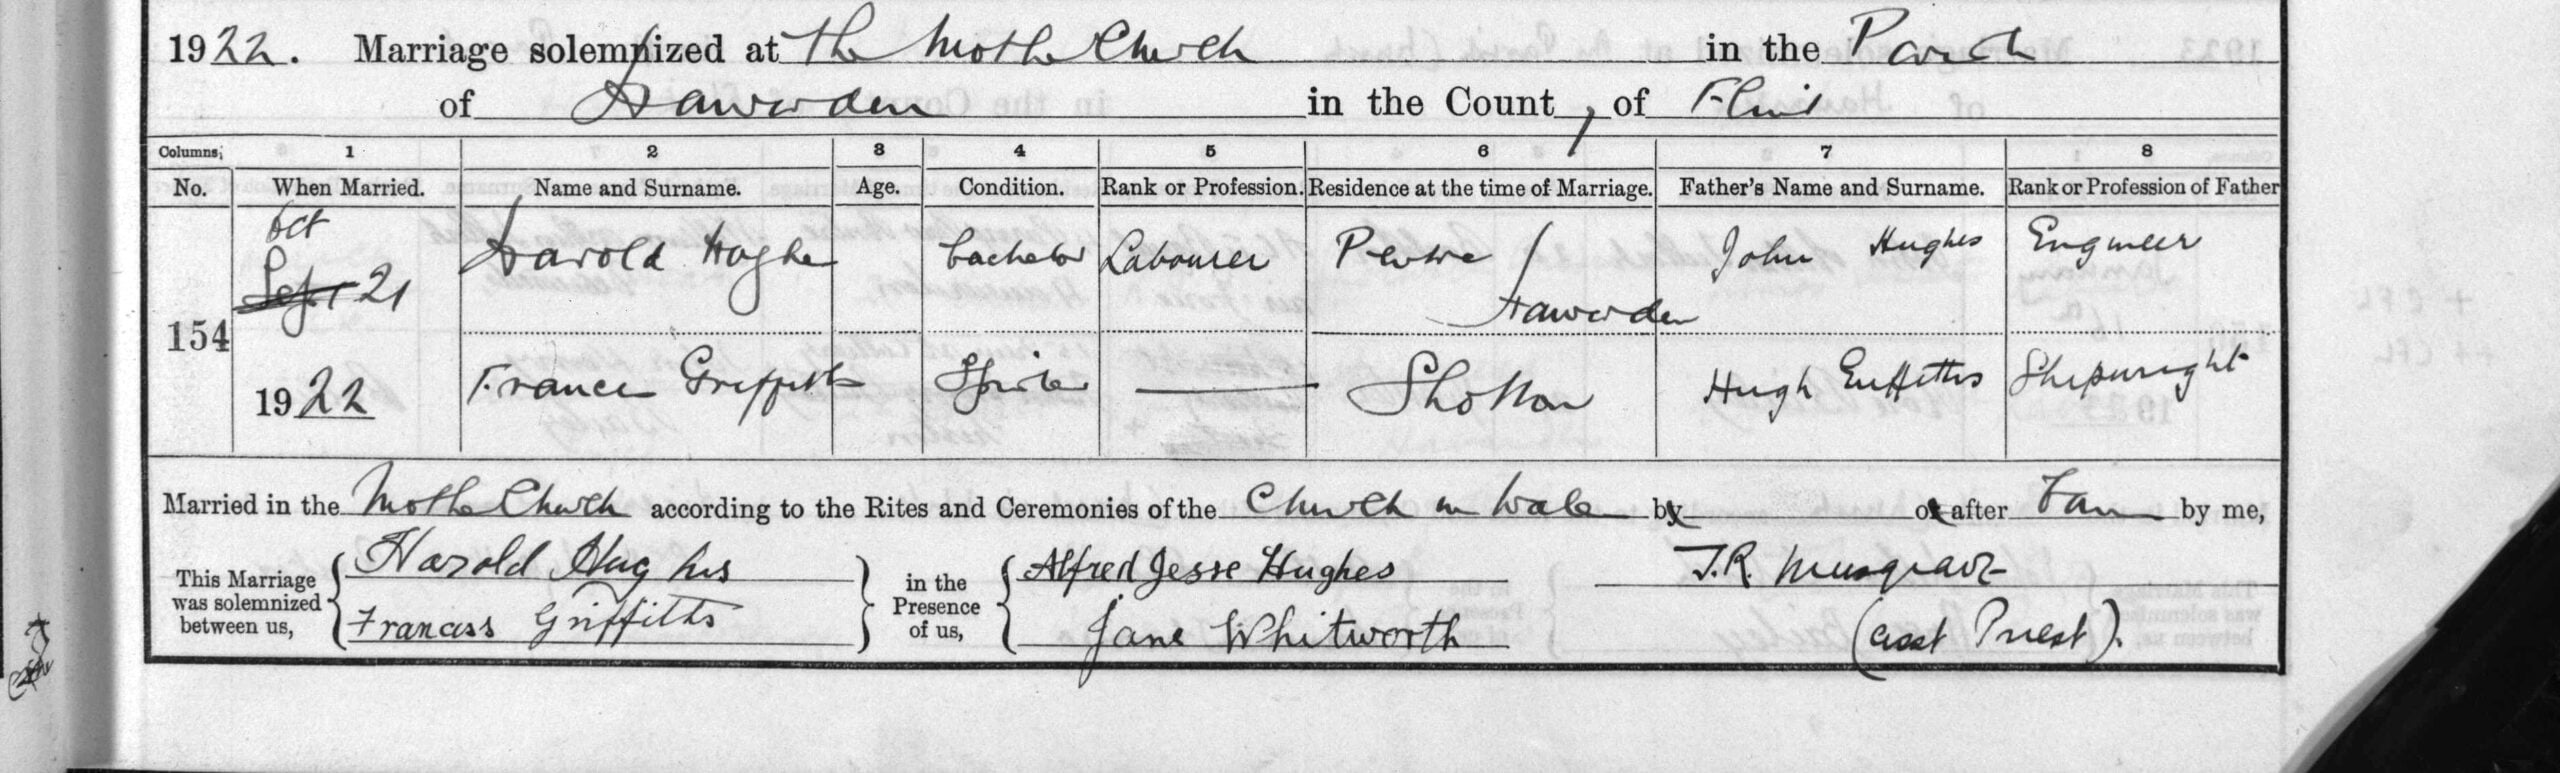 1922. Marriage solemnized at the Mother Church in the Parish
of Hawarden in the County of Flint
Columns, 1 2 3 4 5 6 7 8
No. When Married. Name and Surname. Age. Condition. Rank or Profession. Residence at the time of Marriage. Father's Name and Surname. Rank or Profession of Father
Oct
Sept 21 Harold Hughes bachelor Labourer Hawarden John Hughes Engineer
154
1922 Frances Griffiths Spinster — Shotton Hugh Griffiths Shipwright
Married in the Mother Church according to the Rites and Ceremonies of the Church in Wales by or after Banns by me,
This Marriage was solemnized between us, Harold Hughes in the Presence of us, Alfred Jesse Hughes J.R. Musgrave
Francess Griffiths Jane Whitworth (asst Priest).